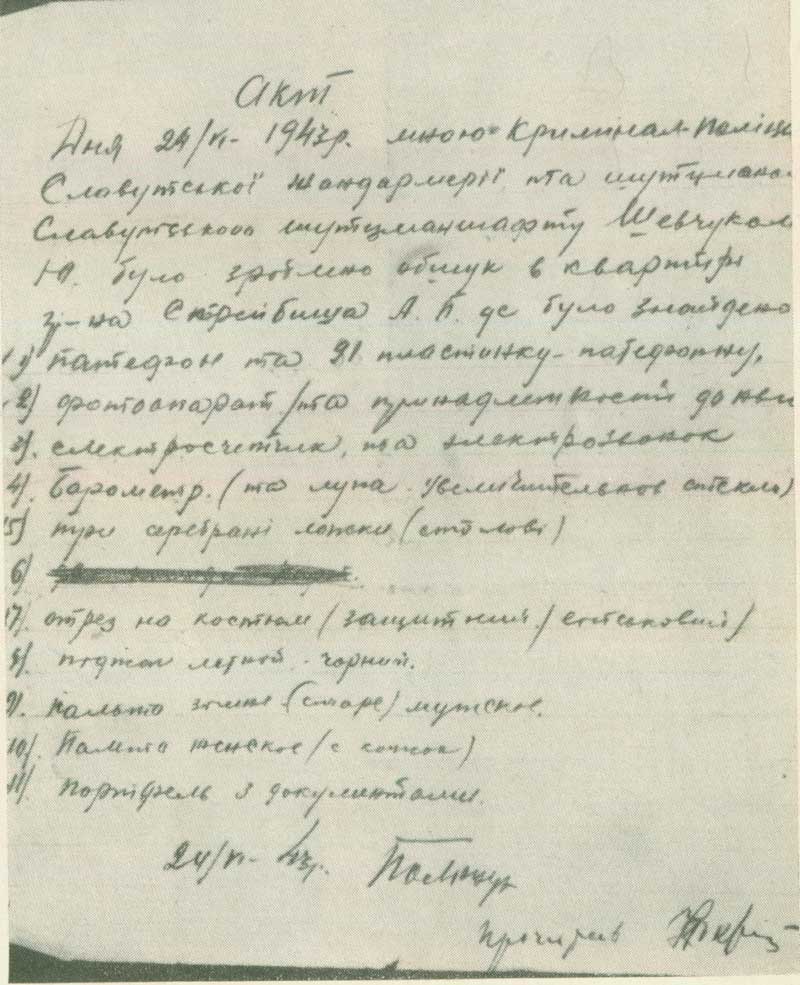 Акт
Дня 24/VI- 1943р. мною Криминал-Поліц
Славутської жандармерії та шутцмано
Славутського шутцманшафту Шевчуком
Ю. було зроблено обшук в квартирі
гр-на Стрейбища А. П. де було знайдено
1) патефон та 21 пластинку патефонну,
2) фотоапарат /та принадлежності до
3). електросчетчик, та электрозвонок
4). Барометр. (та лупа увеличительное стекло)
5) три серебрані ложки (столові)
6)
7). отрез на костюм / защитний / військовий /
8). піджак летной чорний.
9). пальто зимне (старе) мужское.
10). Пальто женское /с
11). портфель з документами.
24/VI- 43р. Поліщук
Прочитав